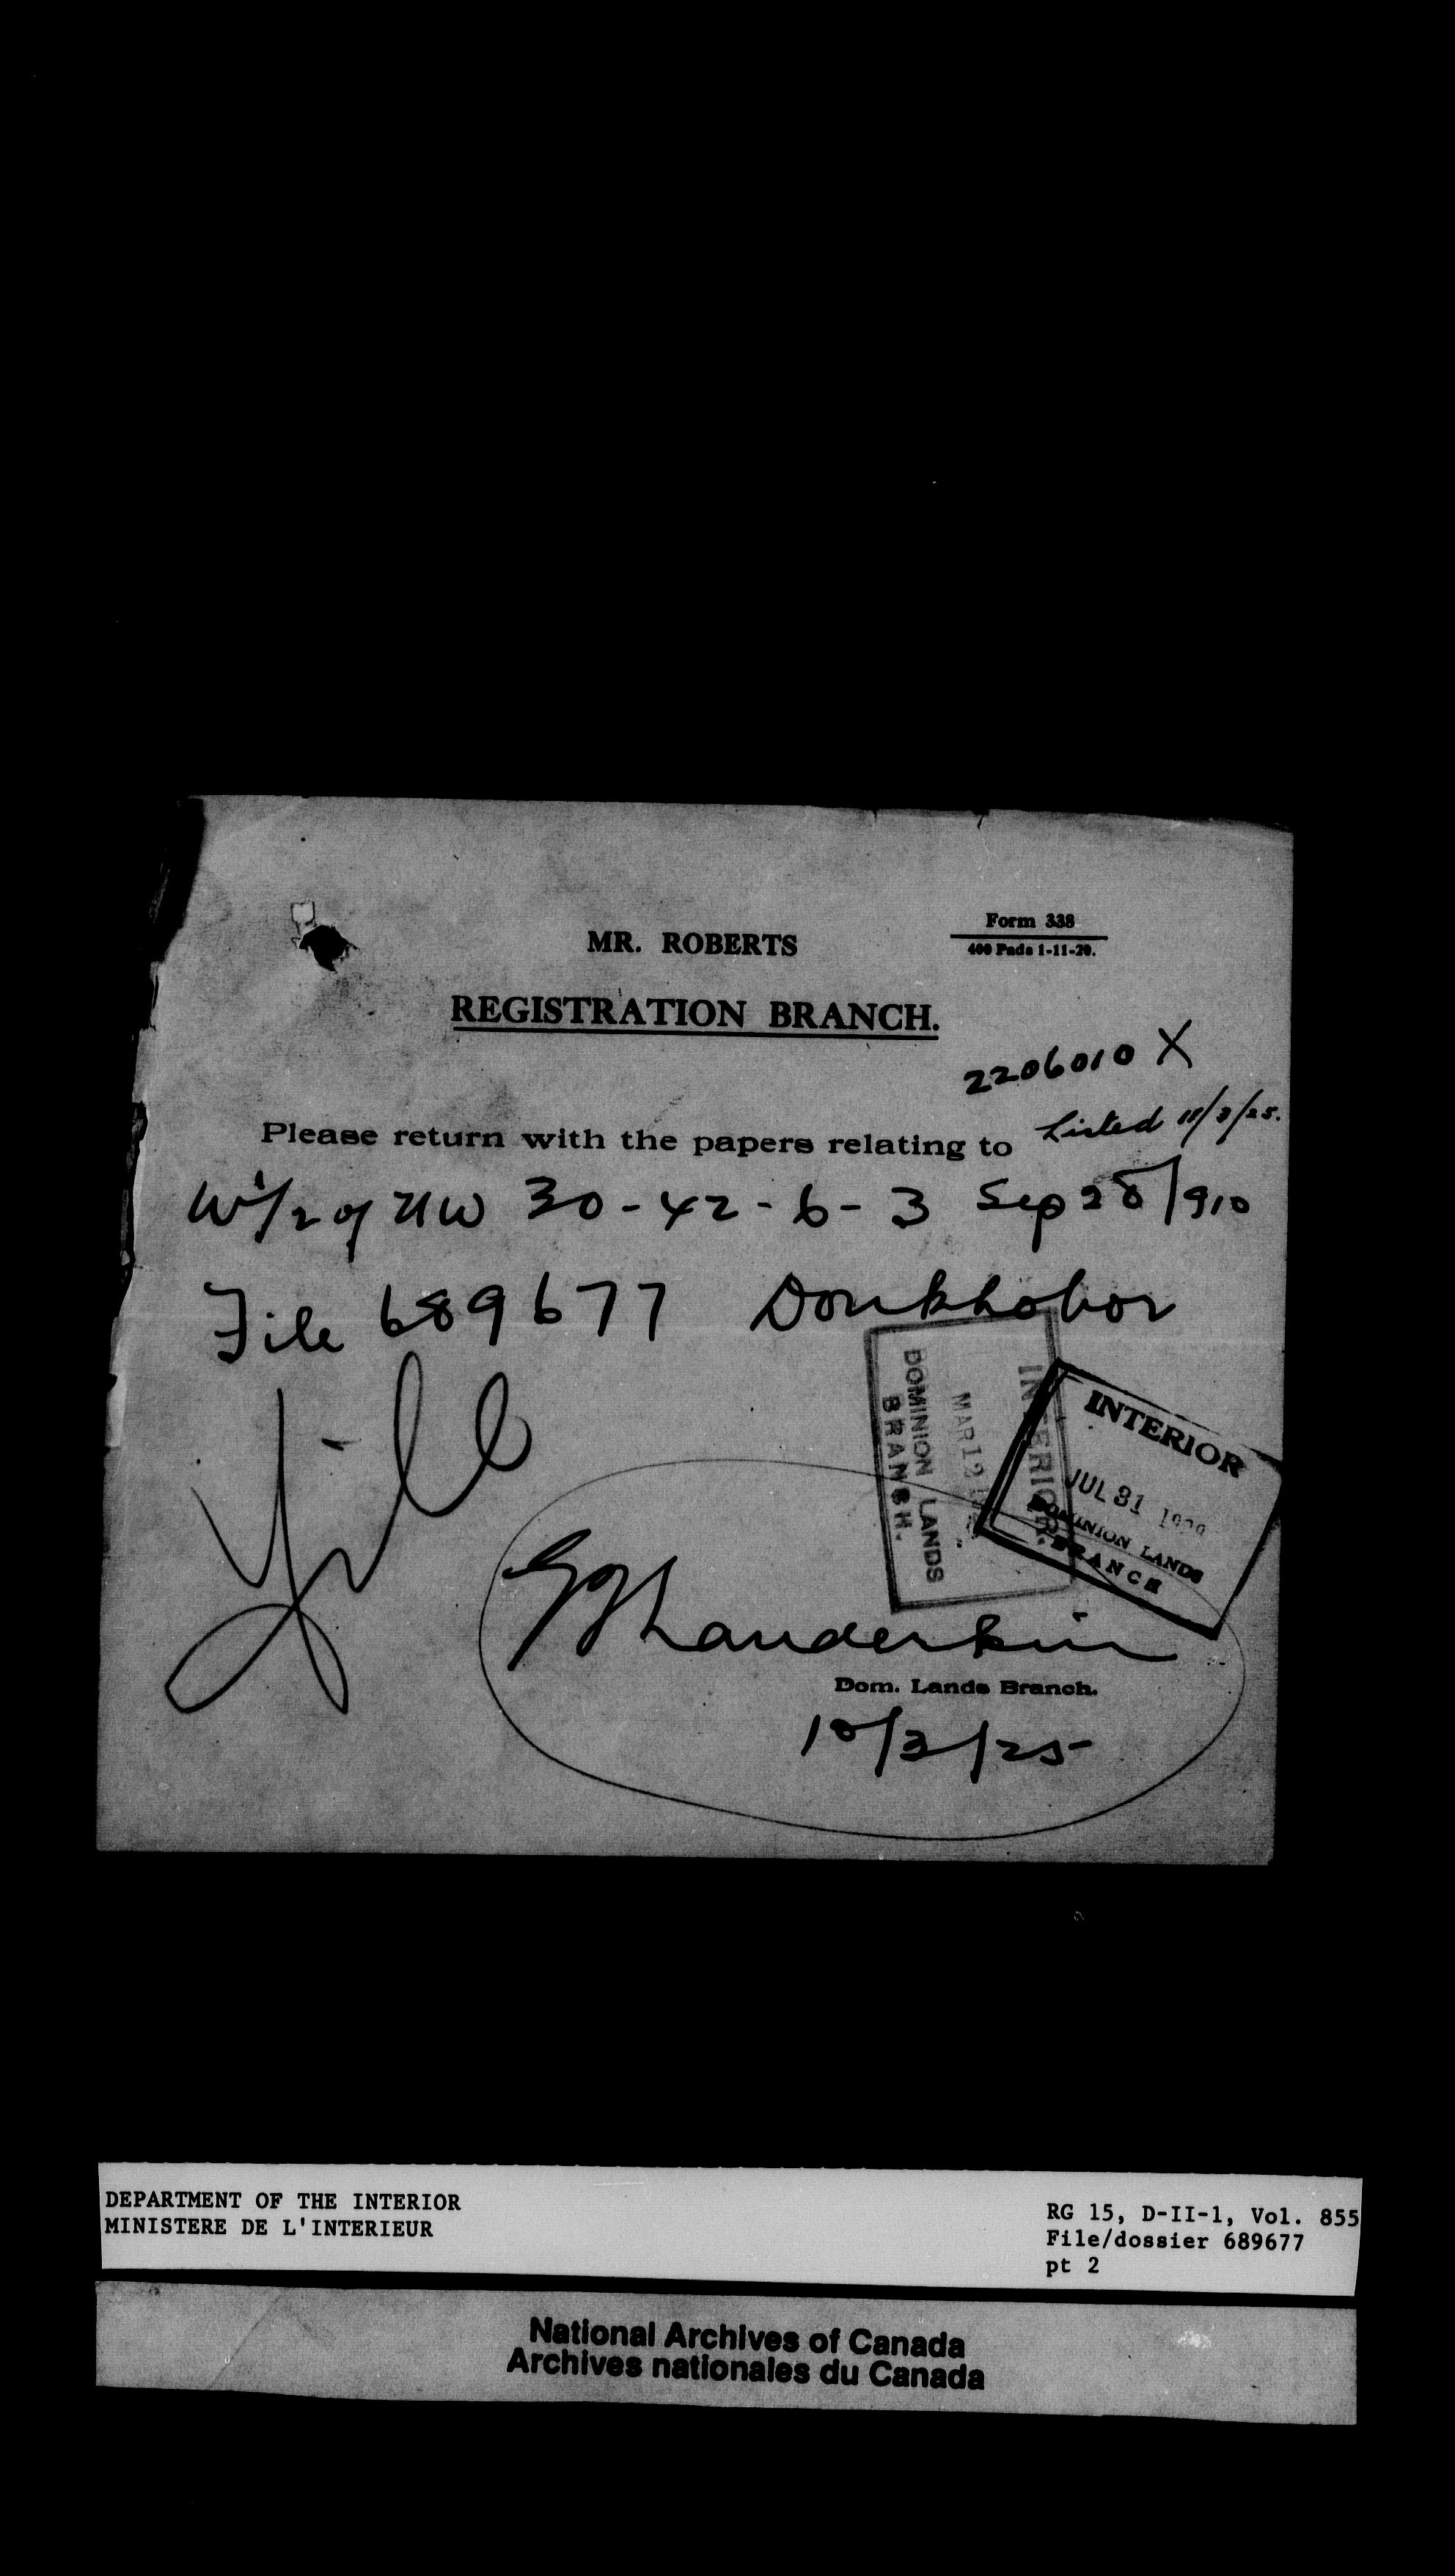 Form 338
400 Pads 1-11-20.
MR. ROBERTS
REGISTRATION BRANCH.
2206010 X
Listed 11/3/25.
Please return with the papers relating to
W 1/2 of NW 30-42-6-3 Sep 28/910
File 689677 Doukhobor
INTERIOR
MAR 12
DOMINION LANDS
BRANCH.
INTERIOR
JUL 31
DOMINION LANDS
BRANCH
File
Landerkin
Dom. Lands Branch.
10/3/25
DEPARTMENT OF THE INTERIOR
MINISTERE DE L'INTERIEUR
RG 15, D-II-1, Vol. 855
File/dossier 689677
pt 2
National Archives of Canada
Archives nationales du Canada